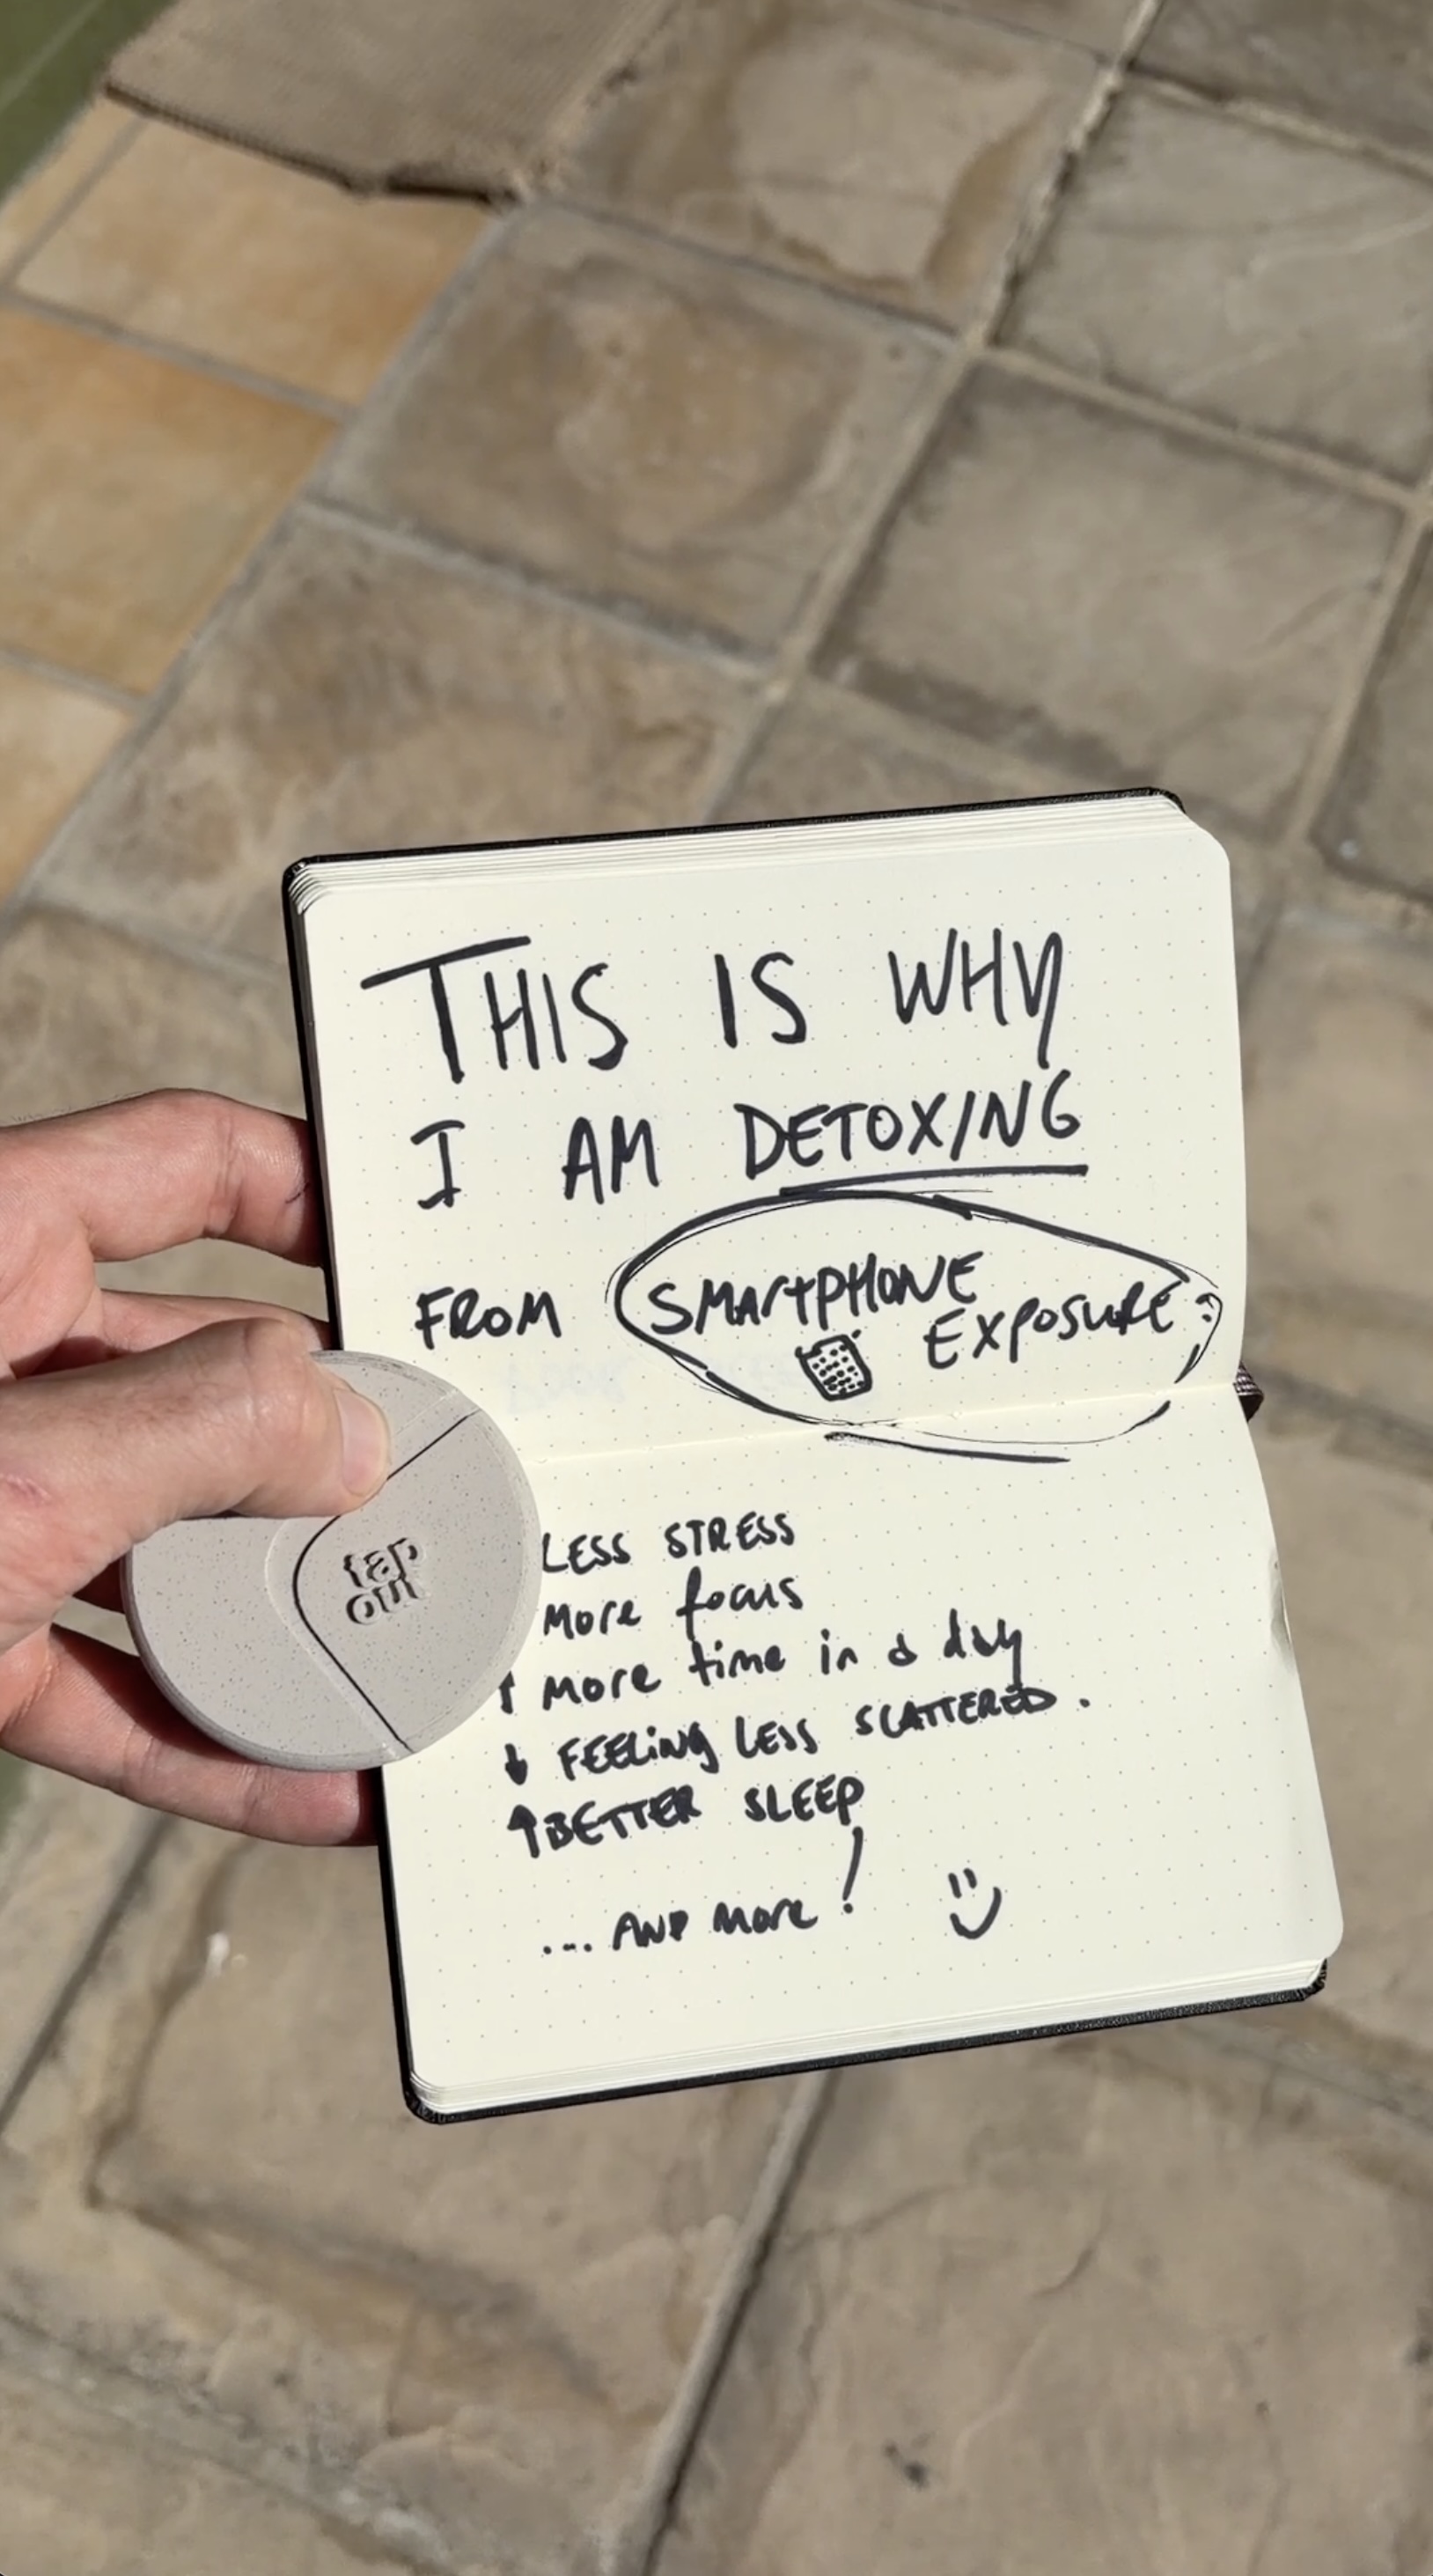 THIS IS WHY
I AM DETOXING
FROM SMARTPHONE
EXPOSURE
tap
out
LESS STRESS
MORE focus
↑ MORE time in a day
↓ FEELING LESS SCATTERED.
↑ BETTER SLEEP
... AND MORE!